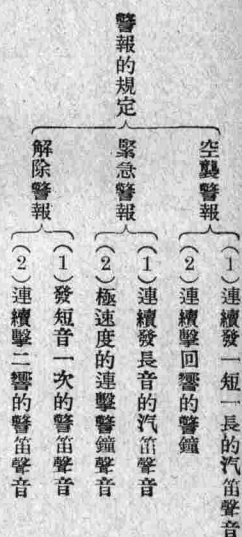 警報的規定
空襲警報
（1）連續發一短一長的汽笛聲音
（2）連續擊回響的警鐘
緊急警報
（1）連續發長音的汽笛聲音
（2）極速度的連擊警鐘聲音
解除警報
（1）發短音一次的警笛聲音
（2）連續擊二響的警笛聲音